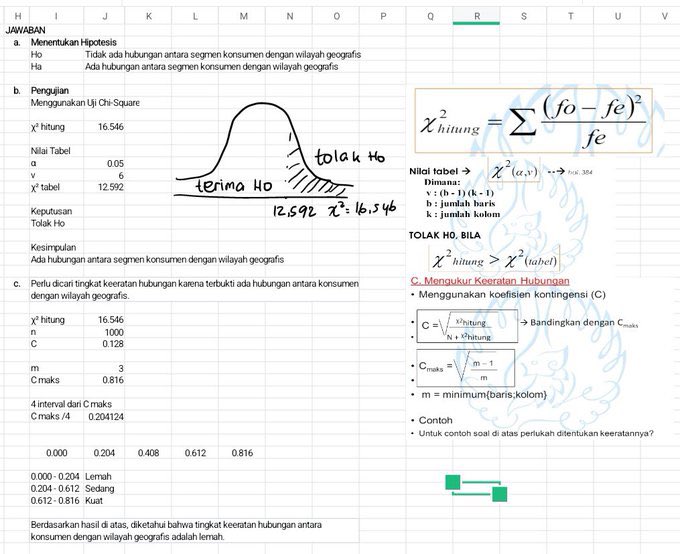 H I J K L M N O P Q R S T U V
JAWABAN
a. Menentukan Hipotesis
Ho Tidak ada hubungan antara segmen konsumen dengan wilayah geografis
Ha Ada hubungan antara segmen konsumen dengan wilayah geografis
b. Pengujian
Menggunakan Uji Chi-Square
χ² hitung 16.546
Nilai Tabel
α 0.05
v 6
χ² tabel 12.592
Keputusan
Tolak Ho
Kesimpulan
Ada hubungan antara segmen konsumen dengan wilayah geografis
terima Ho
tolak Ho
12,592 χ²= 16,546
c. Perlu dicari tingkat keeratan hubungan karena terbukti ada hubungan antara konsumen
dengan wilayah geografis.
χ² hitung 16.546
n 1000
C 0.128
m 3
C maks 0.816
4 interval dari C maks
C maks /4 0.204124
0.000 0.204 0.408 0.612 0.816
0.000 - 0.204 Lemah
0.204 - 0.612 Sedang
0.612 - 0.816 Kuat
Berdasarkan hasil di atas, diketahui bahwa tingkat keeratan hubungan antara
konsumen dengan wilayah geografis adalah lemah.
χ² hitung = ∑ (fo − fe)² / fe
Nilai tabel → χ² (α,v) --→ hal. 384
Dimana:
v : (b - 1) (k - 1)
b : jumlah baris
k : jumlah kolom
TOLAK H0, BILA
χ² hitung > χ² (tabel)
C. Mengukur Keeratan Hubungan
• Menggunakan koefisien kontingensi (C)
• C = √ χ²hitung / N + χ²hitung → Bandingkan dengan Cmaks
• Cmaks = √ m − 1 / m
• m = minimum{baris;kolom}
• Contoh
• Untuk contoh soal di atas perlukah ditentukan keeratannya?